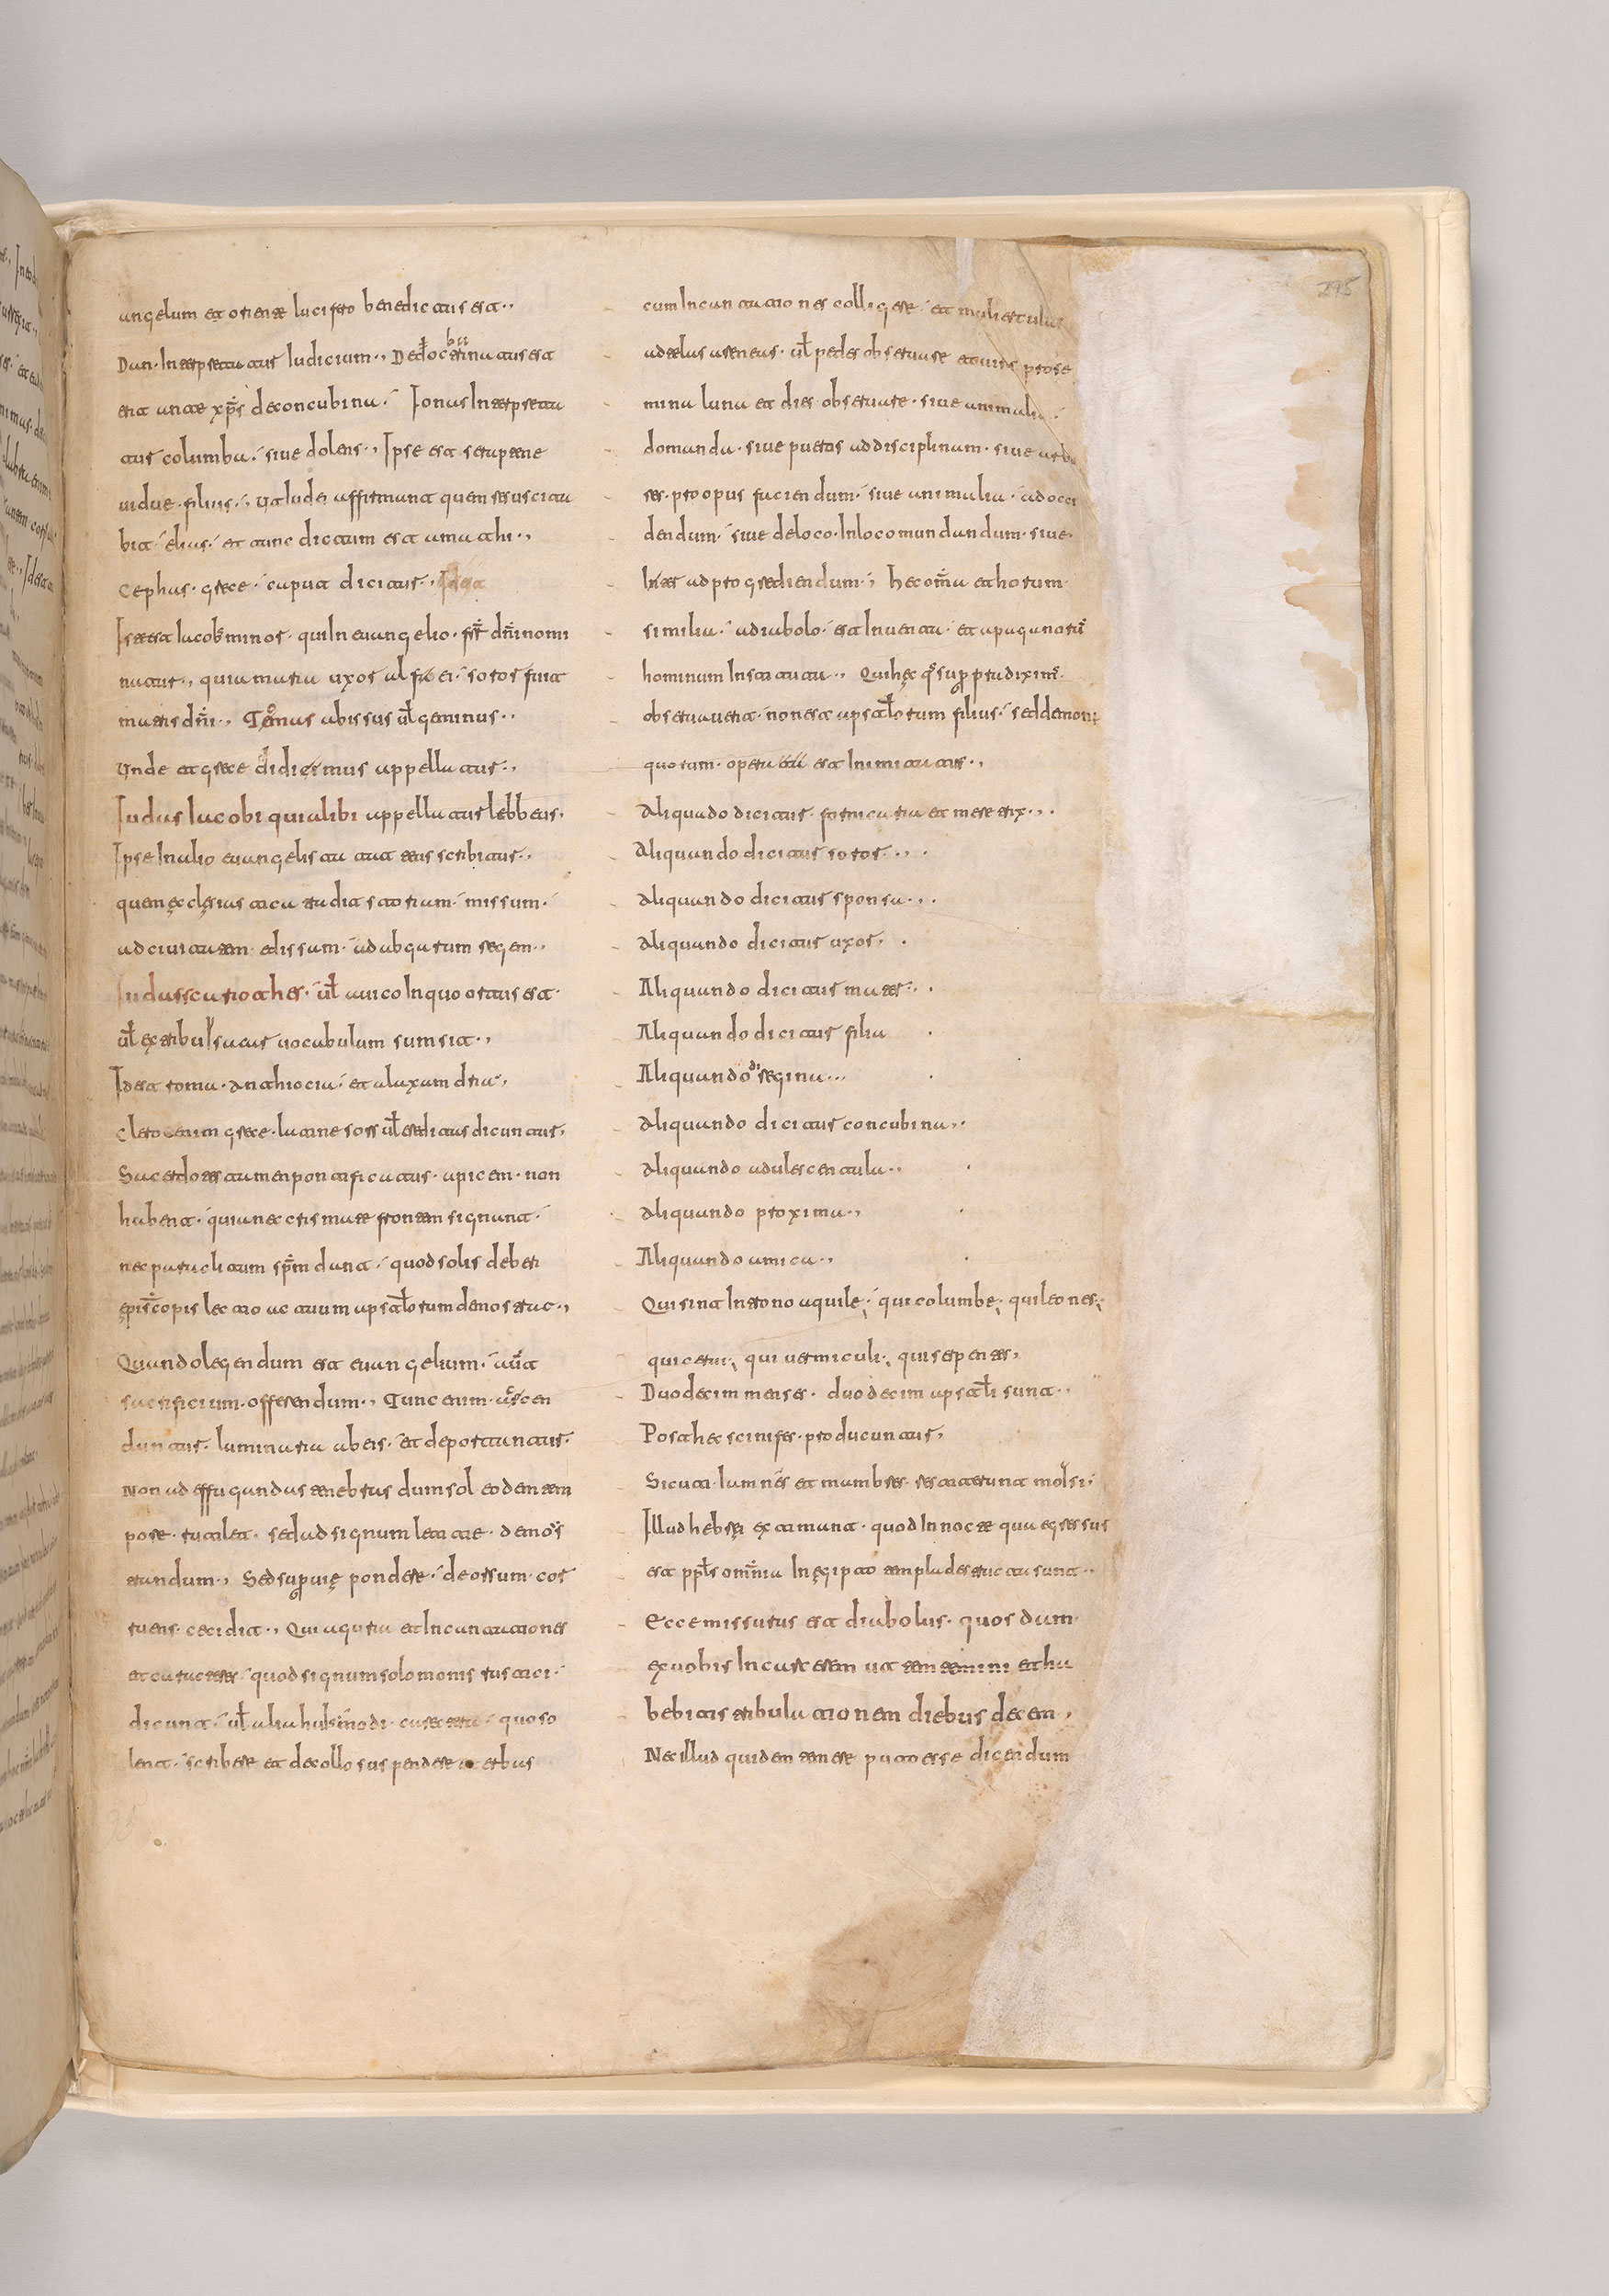 angelum et oriente lucifero benedictus est.,
Dan. Interpretatur Iudicium.,
de concubina. Ionas Interpreta
tur columba. sive dolens., Ipse est sereptene
vidue. filius., affirmant quem resuscita
bit. elias. et tunc dictum est amathi.,
Cephas. grece. caput dicitur.,
Iste est Iacob minor. qui In euangelio. frt dñi nomi
natur., quia maria uxor alfei. soror fuit
matris dñi., Tomas abissus uł geminus.,
Unde et grece didicimus appellatur.,
Iudas Iacobi qui alibi appellatur lebbeus.
Ipse In alio euangelista tateus scribitur.,
missum.
ad civitatem. edissam. ad abgarum regem.,
Iudas scariothes. uł a vico In quo ortus est.
uł ex tribu Isacar vocabulum sumsit.,
Id est roma. Antiocia. et alaxandria,
grece. latine sors uł dicuntur,
Sacerdotes tamen pontificatus. apicem. non
habent. quia nec crismate frontem signant.
nec spm dant. quod solis deberi
episcopis lectio actuum apstłorum demonstrat.,
Quando legendum est euangelium. aut
sacrificium. offerendum., Tunc enim. accen
duntur. luminaria ab eis. et deportantur.
Non ad effugandas tenebras dum sol eodem tem
pore. rutilet. sed ad signum letitie. demons
trandum., Sed pondere. deorsum. cor
ruens. cecidit., Qui aguria et Incantationes
et caracteres. quod signum solomonis rustici.
dicunt. uł alia huiusmodi. quo so
lent. scribere et de collo suspendere erbas
cum Incantationes colligere. et mulierculas
ad telas uł pedes observare
luna et dies observare. sive animalia.
domanda. sive pueros ad disciplinam. sive
pro opus faciendum. sive animalia. ad occi
dendum. sive de loco. In loco mandandum. sive.
Iter ad progrediendum., hec omnia et horum.
similia. a diabolo. est Inventa. et
hominum Instituta., Qui hęc
observaverit. non est apstłorum filius. sed demoni
quorum. opera est Imitatus.,
Aliquado dicitur. fornicaria et meretrix.,.
Aliquando dicitur soror.,.
Aliquando dicitur sponsa.,.
Aliquando dicitur uxor. .
Aliquando dicitur mater.. .
Aliquando dicitur filia .
Aliquando d regina...
Aliquando dicitur concubina,.
Aliquando adulescentula.,
Aliquando proxima.,
Aliquando amica.,
Qui sint In trono aquile. qui columbe. qui leones.
qui cerui. qui vermiculi. qui serpentes,
Duodecim menses. duodecim apstłi sunt.,
Post hec scinifes. producuntur,
Sicut. Iamnes et mambres. resistterunt moisi.
Illud hebrei extimant. quod In nocte qua egressus
est pplś omnia In egipto templa destructa sunt.,
Ecce missurus est diabolus. quosdam.
ex vobis In carcerem ut temtemini et ha
bebitis tribulationem diebus decem,
Nec illud quidem temere puto esse dicendum
295